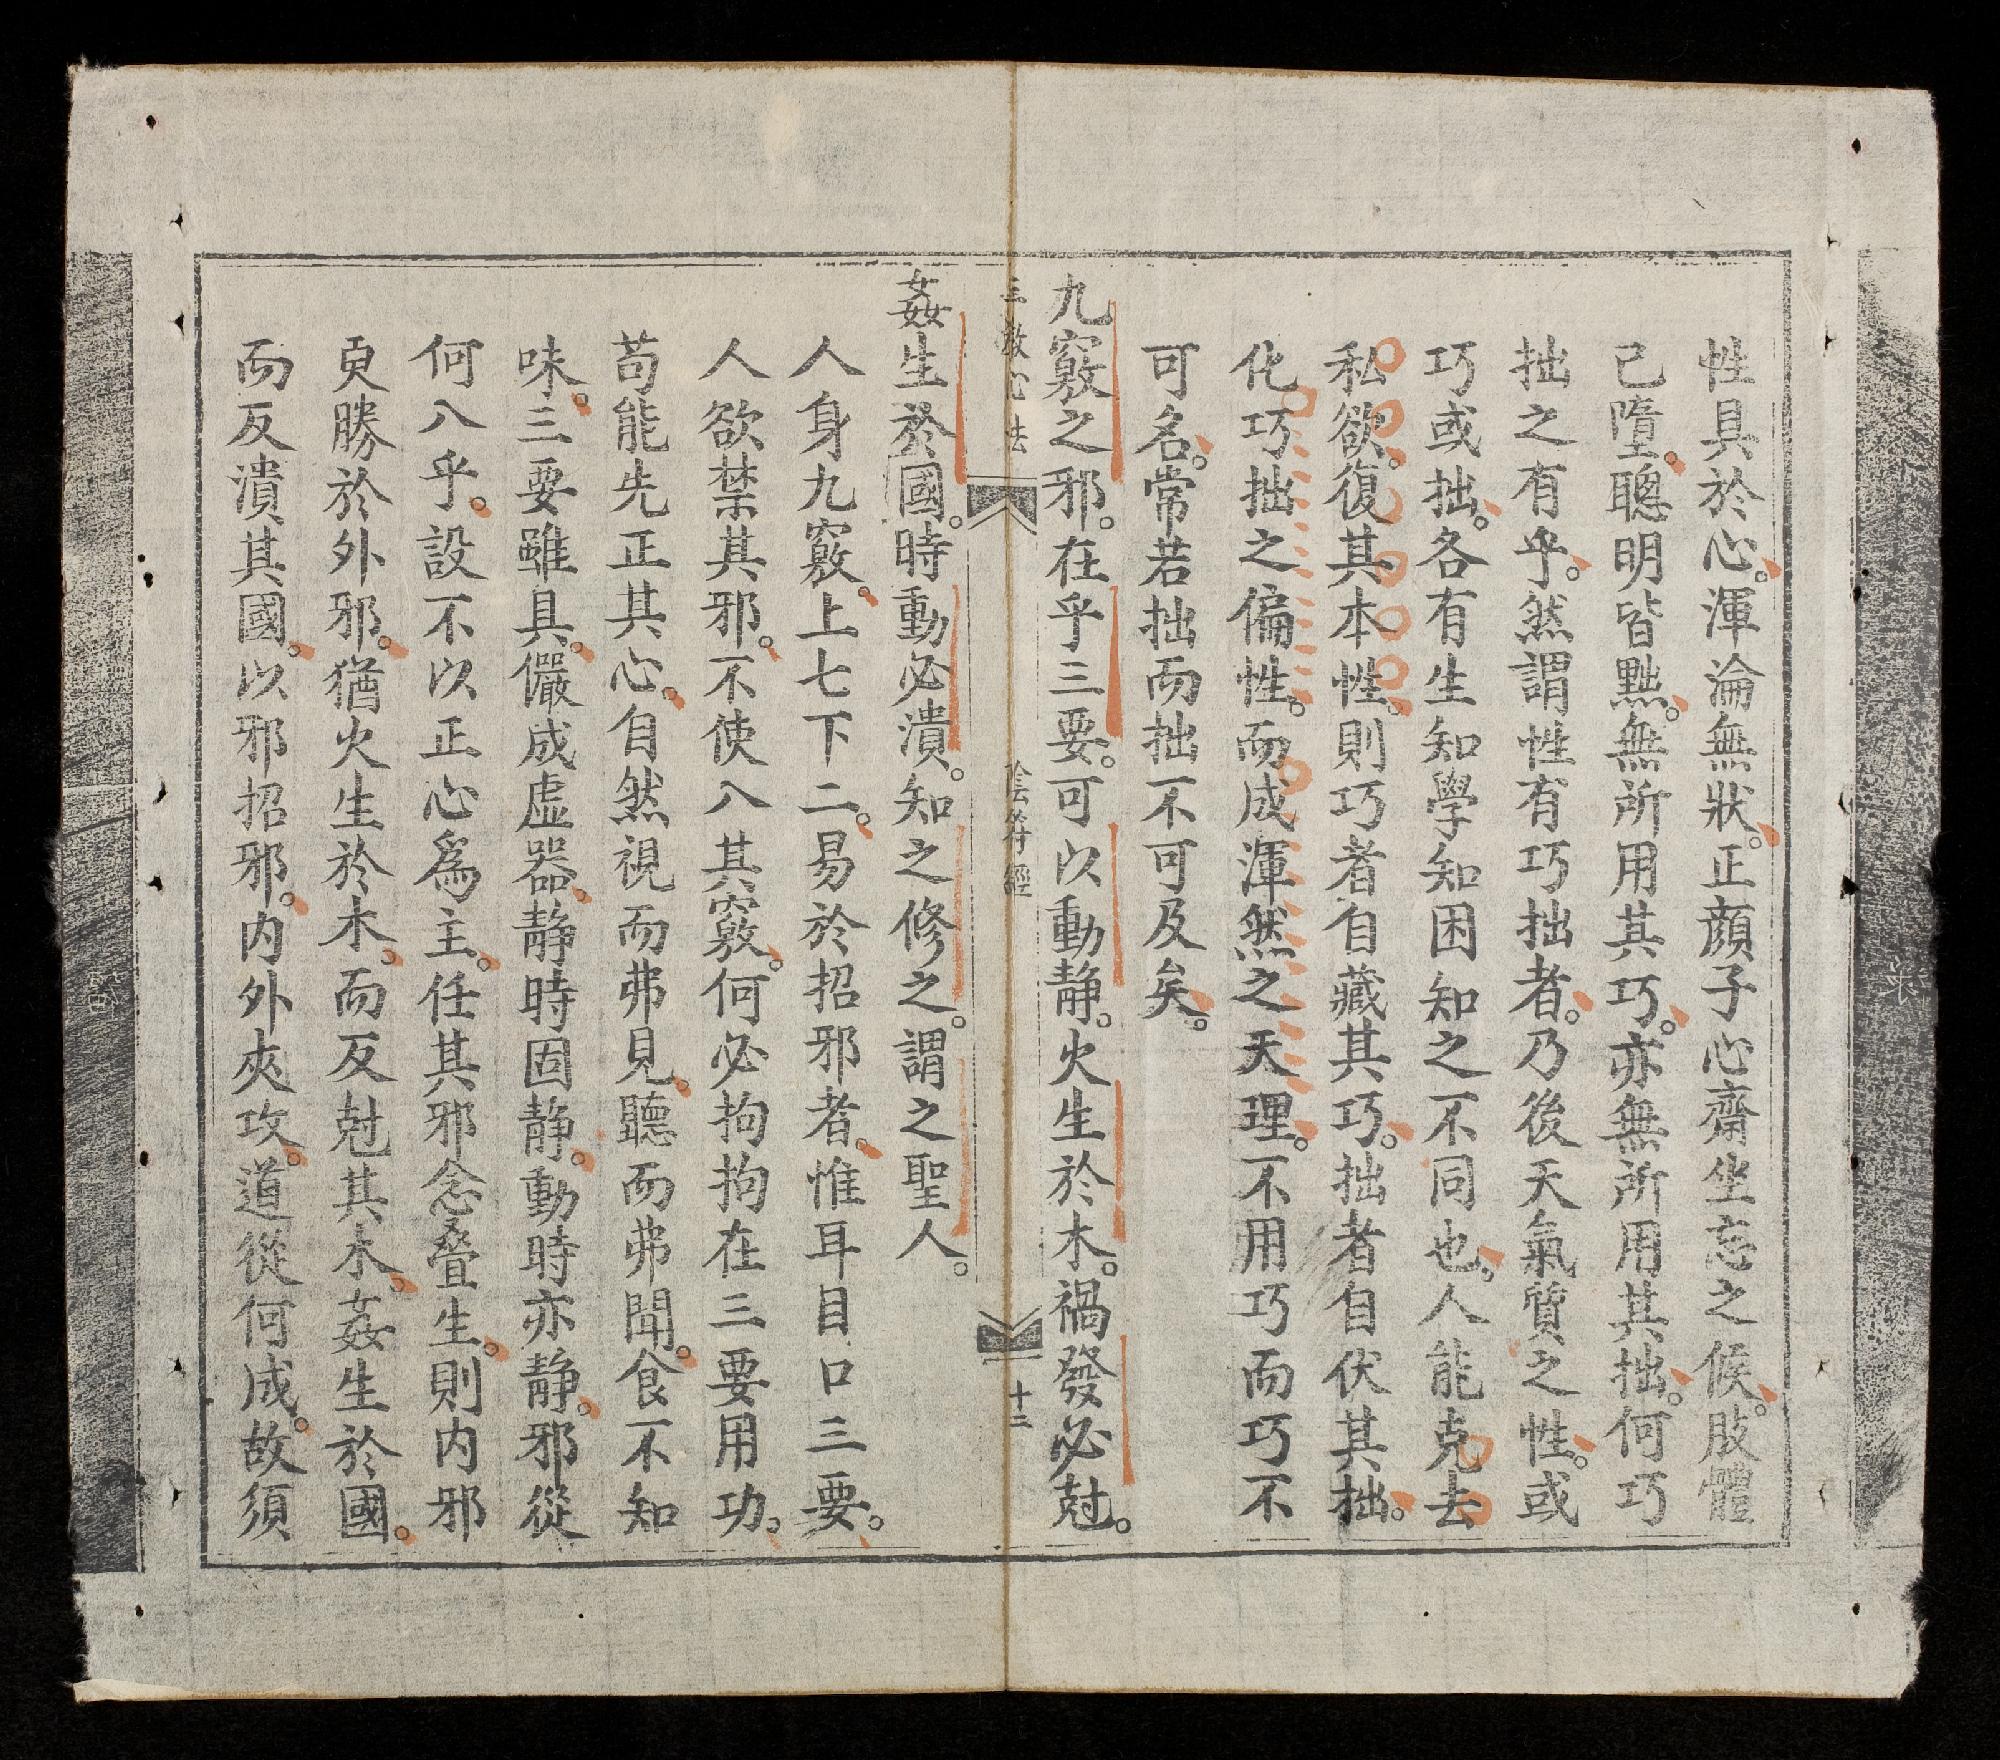 性具於心。渾淪無狀。正顔子心齋坐忘之候。肢體
已墮。聰明皆黜。無所用其巧。亦無所用其拙。何巧
拙之有乎。然謂性有巧拙者。乃後天氣質之性。或
巧或拙。各有生知學知困知之不同也。人能克去
私欲。復其本性。則巧者自藏其巧。拙者自伏其拙。
化巧拙之偏性。而成渾然之天理。不用巧而巧不
可名。常若拙而拙不可及矣。
九竅之邪。在乎三要。可以動静。火生於木。禍發必尅。
三教心法
陰符經
十二
姦生於國。時動必潰。知之修之。謂之聖人。
人身九竅。上七下二。易於招邪者。惟耳目口三要。
人欲禁其邪。不使入其竅。何必拘拘在三要用功。
苟能先正其心。自然視而弗見。聽而弗聞。食不知
味。三要雖具。儼成虚器。静時固静。動時亦静。邪從
何入乎。設不以正心為主。任其邪念叠生。則内邪
更勝於外邪。猶火生於木。而反尅其木。姦生於國。
而反潰其國。以邪招邪。内外夾攻。道從何成。故須